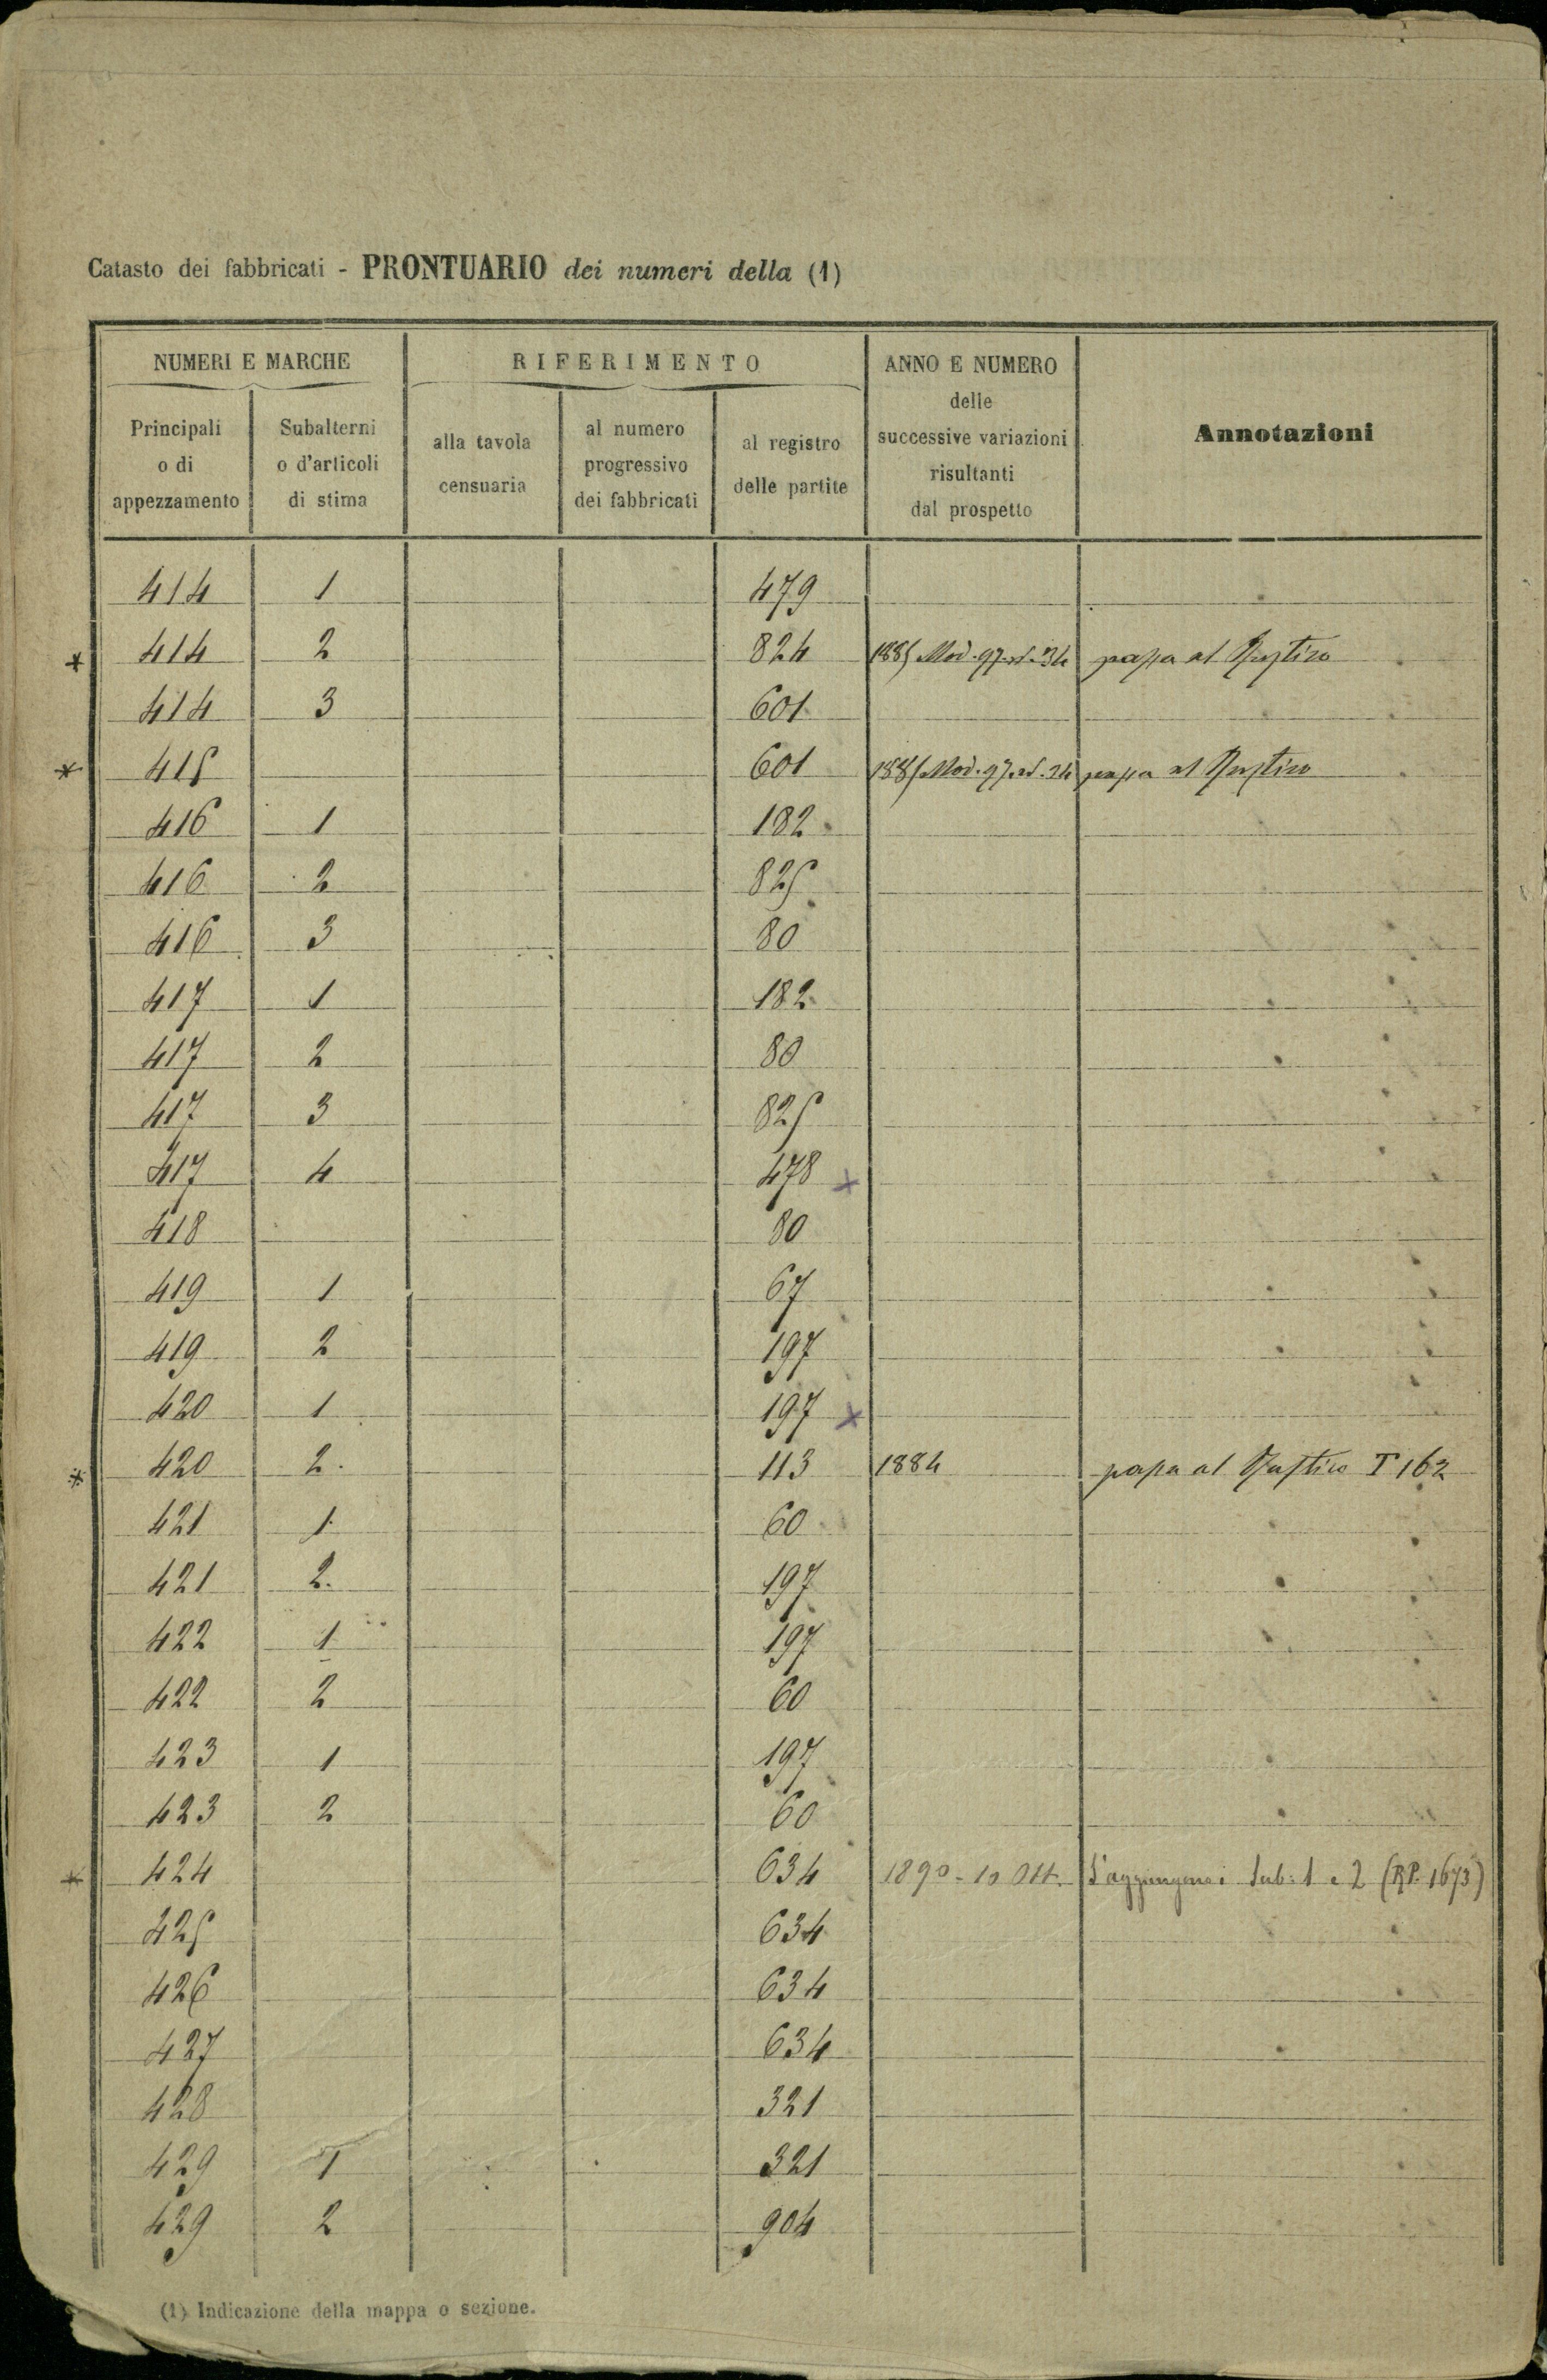 Catasto dei fabbricati - PRONTUARIO dei numeri della (1)
NUMERI E MARCHE
RIFERIMENTO
ANNO E NUMERO
delle
successive variazioni
risultanti
dal prospetto
Annotazioni
Principali
o di
appezzamento
Subalterni
o d'articoli
di stima
alla tavola
censuaria
al numero
progressivo
dei fabbricati
al registro
delle partite
414 1 479
* 414 2 824 1885 Mod. 97. 34 passa al Rustico
414 3 601
* 415 601 1885 Mod. 97. 34 passa al Rustico
416 1 182
416 2 825
416 3 80
417 1 182
417 2 80
417 3 825
417 4 478 x
418 80
419 1 67
419 2 197
420 1 197 x
* 420 2. 113 1884 passa al Rustico T 162
421 1 60
421 2. 197
422 1 197
422 2 60
423 1 197
423 2 60
* 424 634 1890 - 10 Ott. S'aggiungono i Sub: 1 e 2 (RP. 1673)
425 634
426 634
427 634
428 321
429 1 321
429 2 904
(1) Indicazione della mappa o sezione.